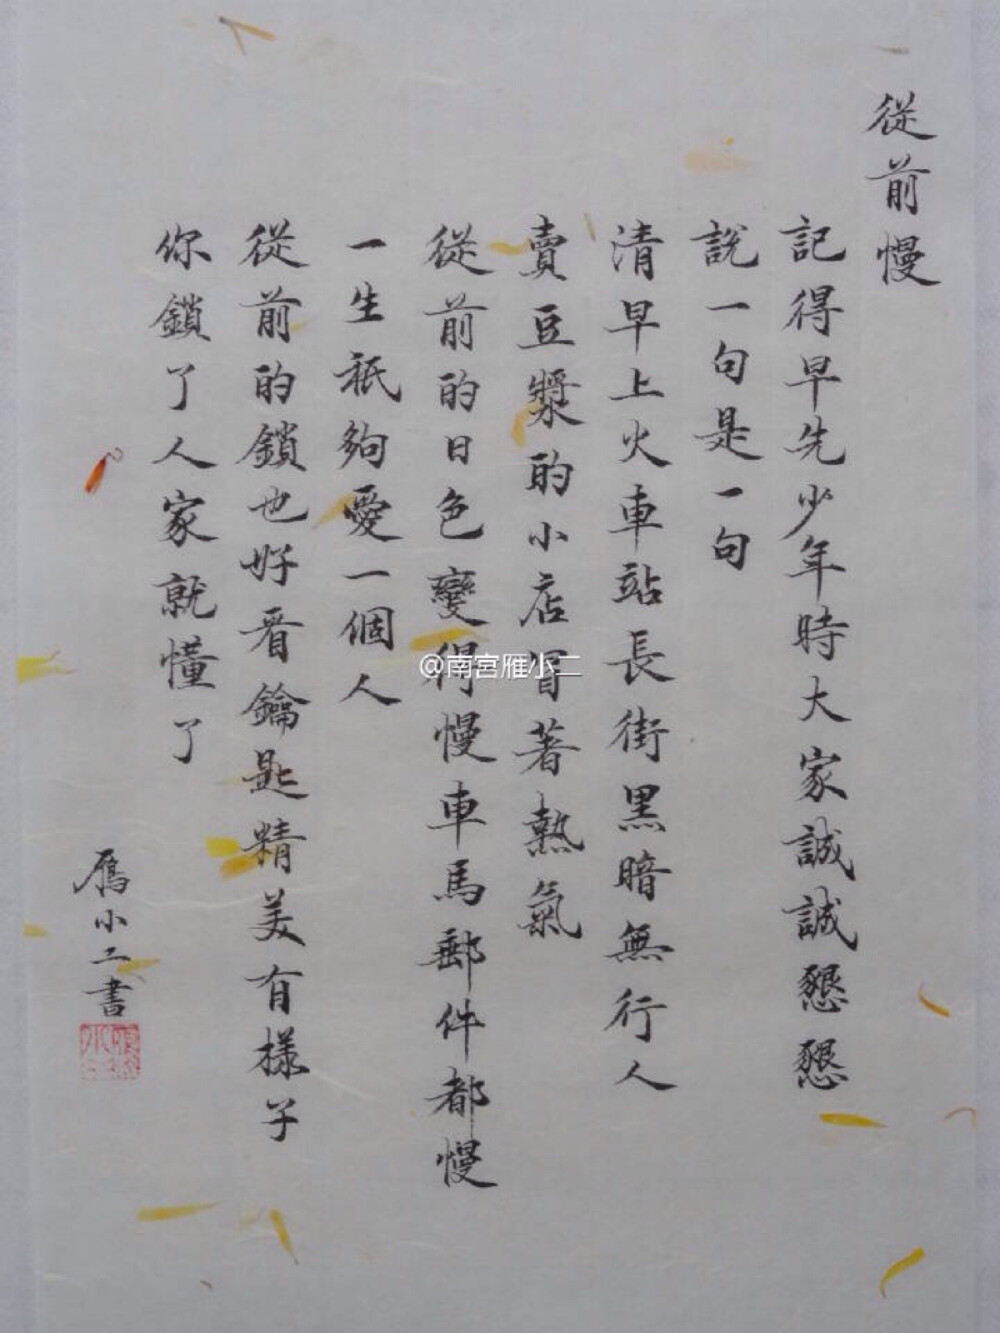 從前慢
記得早先少年時大家誠誠懇懇
說一句是一句
清早上火車站長街黑暗無行人
賣豆漿的小店冒著熱氣
從前的日色變得慢車馬郵件都慢
一生祇夠愛一個人
從前的鎖也好看鑰匙精美有樣子
你鎖了人家就懂了
雁小二書
@南宮雁小二